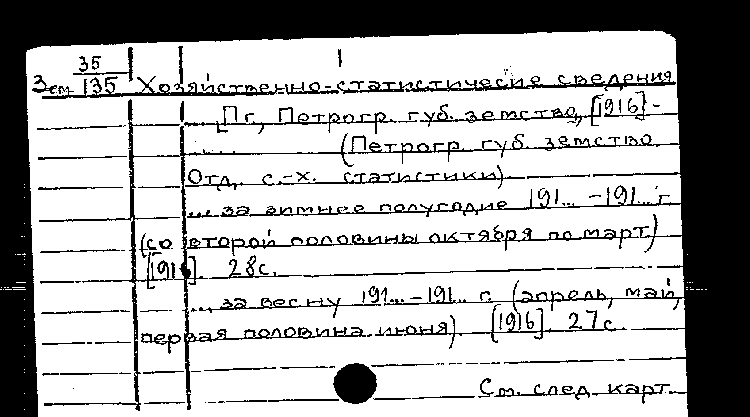 35
1
Зем. 135 Хозяйственно-статистические сведения
... [Пг., Петрогр. губ. земство, [1916] -
..... (Петрогр. губ. земство.
Отд. с.-х. статистики)
... за зимнее полугодие 191... -191... г.
(со второй половины октября по март)
[1916]. 28 с.
... за весну 191... -191... г. (апрель, май,
первая половина июня). [1916]. 27 с.
См. след. карт.